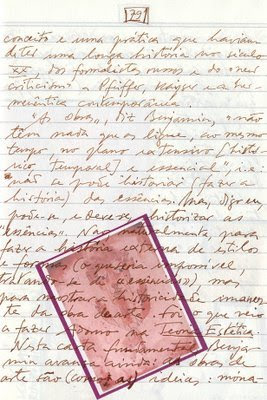 79
conceito e uma prática que haviam de
ter uma longa história no século
XX, dos formalistas russos e do "new
criticism" a Pfeiffer, Kayser e a her-
menêutica contemporânea.
"As obras", diz Benjamin, "não
têm nada que as ligue, ao mesmo
tempo, no plano extensivo [histó-
rico, temporal] e essencial", i.e.:
não se pode historiar (fazer a
história) das essências. Mas, digo eu,
pode-se e deve-se historizar as
"essências". Não naturalmente para
fazer a história externa de estilos
e formas (o que seria impossível,
tratando-se de "essências"), mas
para mostrar a historicidade imanen-
te da obra de arte. Foi o que veio
a fazer Adorno na Teoria Estética.
Nesta carta fundamental Benja-
min avança ainda: as obras de
arte são (como as) ideias: mona-